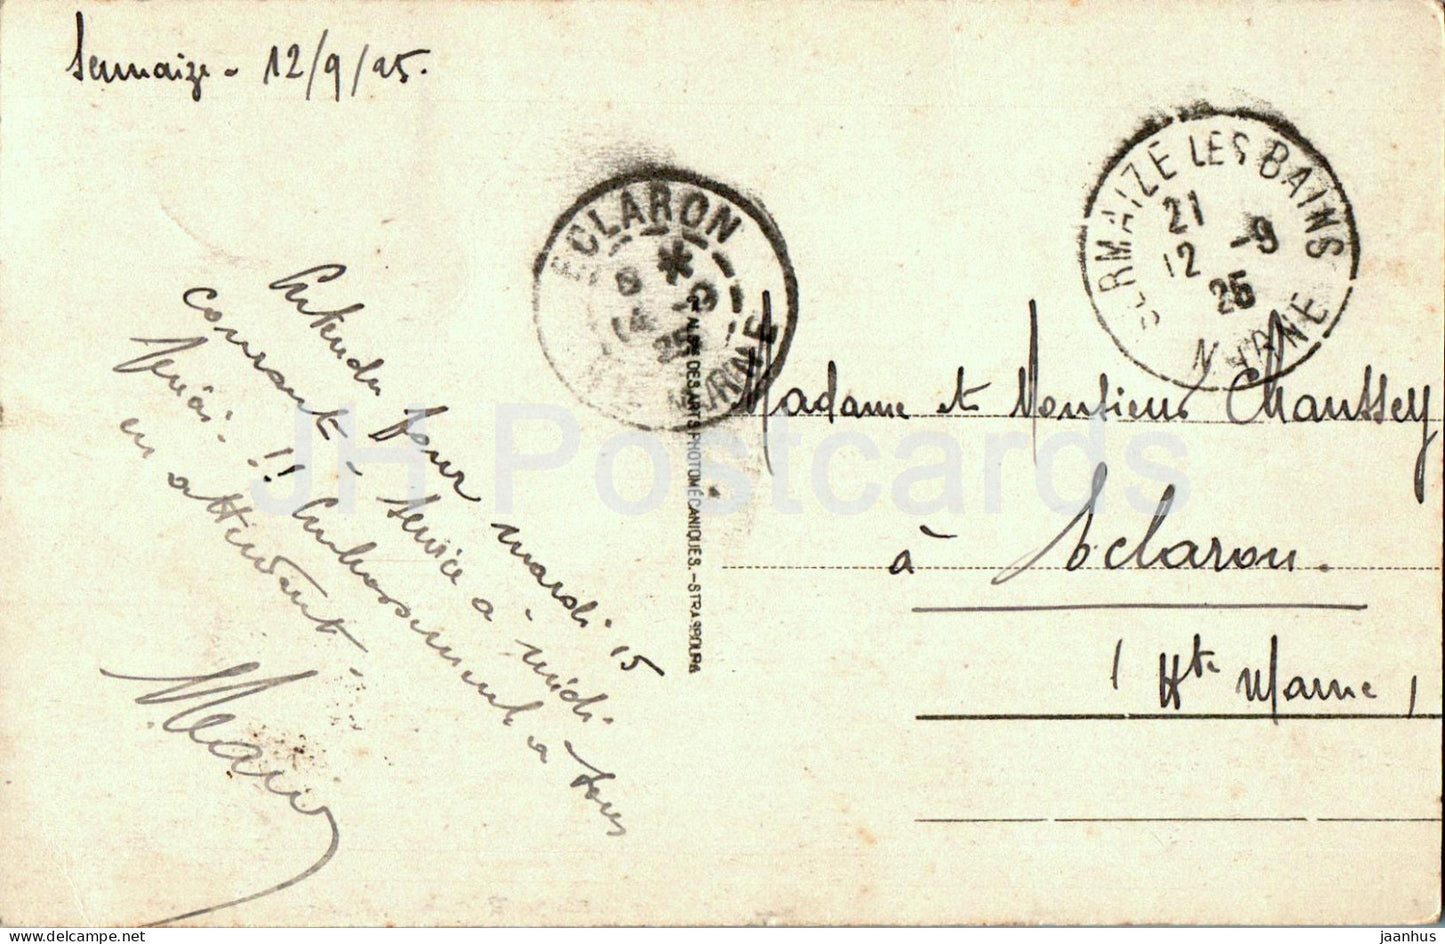 Sermaize - 12/9/25.
Entendu pour mardi 15
courant - service à midi
précis. !! Embrassements à tous
en attendant -
Marie
ECLARON
8 * 9
14 25
HTE MARNE
DES ARTS PHOTOMÉCANIQUES.-STRASBOURG
SERMAIZE LES BAINS
21 - 9
12 25
MARNE
Madame et Monsieur Chaussey
à Eclaron.
(Hte Marne)
JH Postcards
delcampe.net
jaanhus